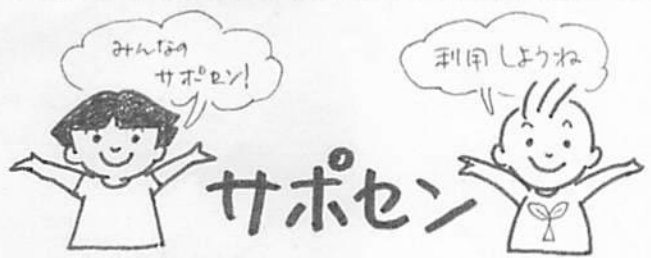 みんなの
サポセン!
利用しようね
サポセン